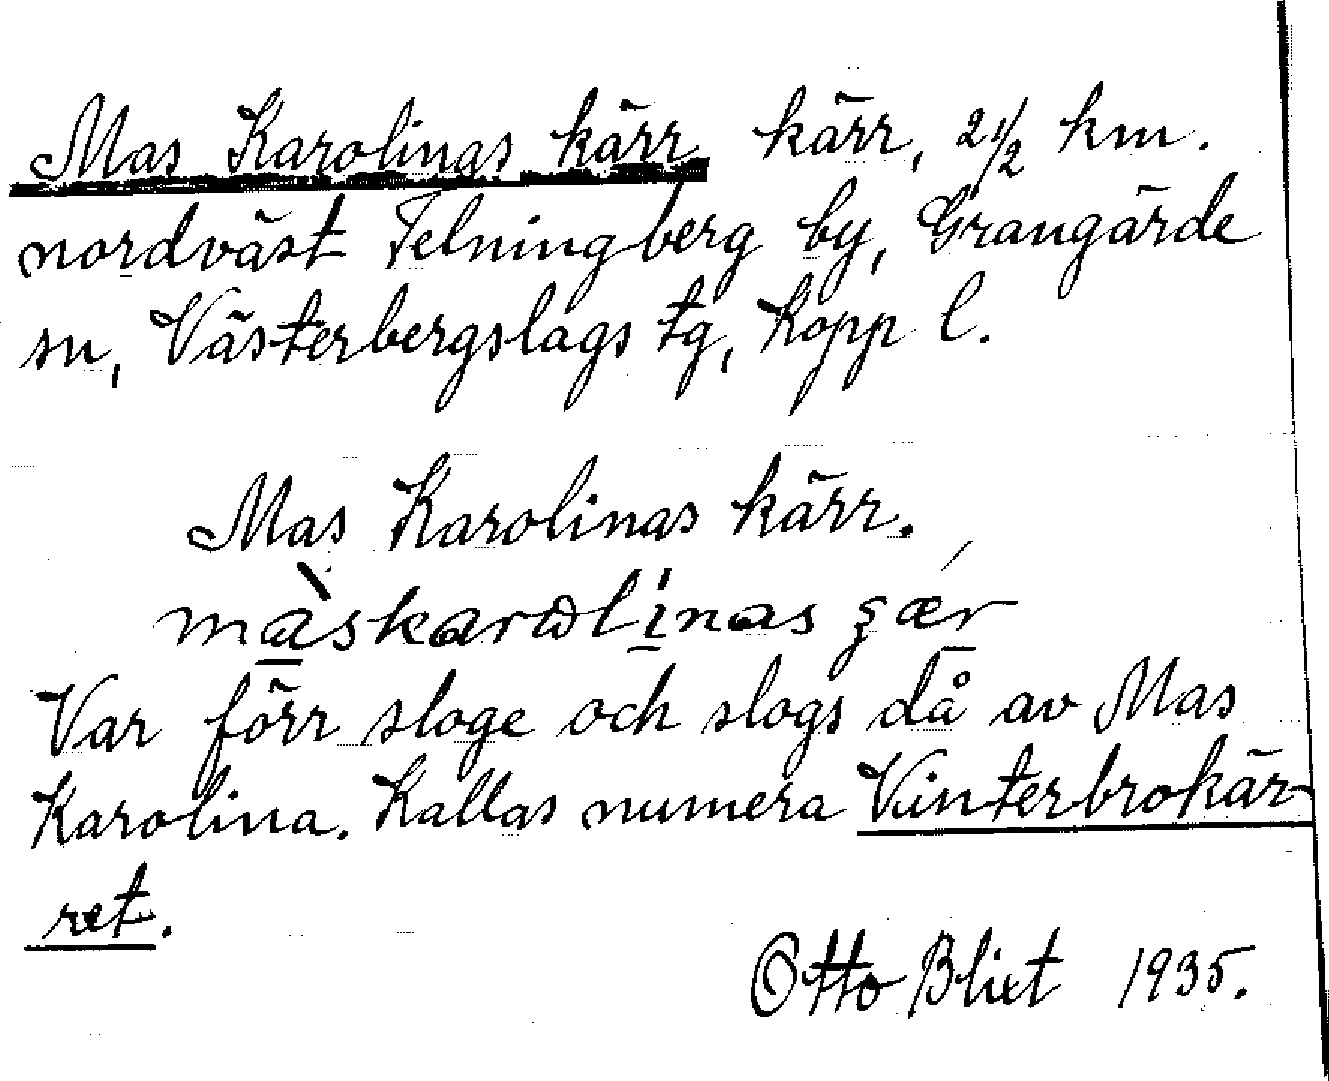 Mas Karolinas kärr kärr, 2 1/2 km.
nordväst Telningberg by, Grangärde
sn, Västerbergslags tg, Kopp l.
Mas Karolinas kärr.
Var förr sloge och slogs då av Mas
Karolina. Kallas numera Vinterbrokär-
ret.
Otto Blixt 1935.